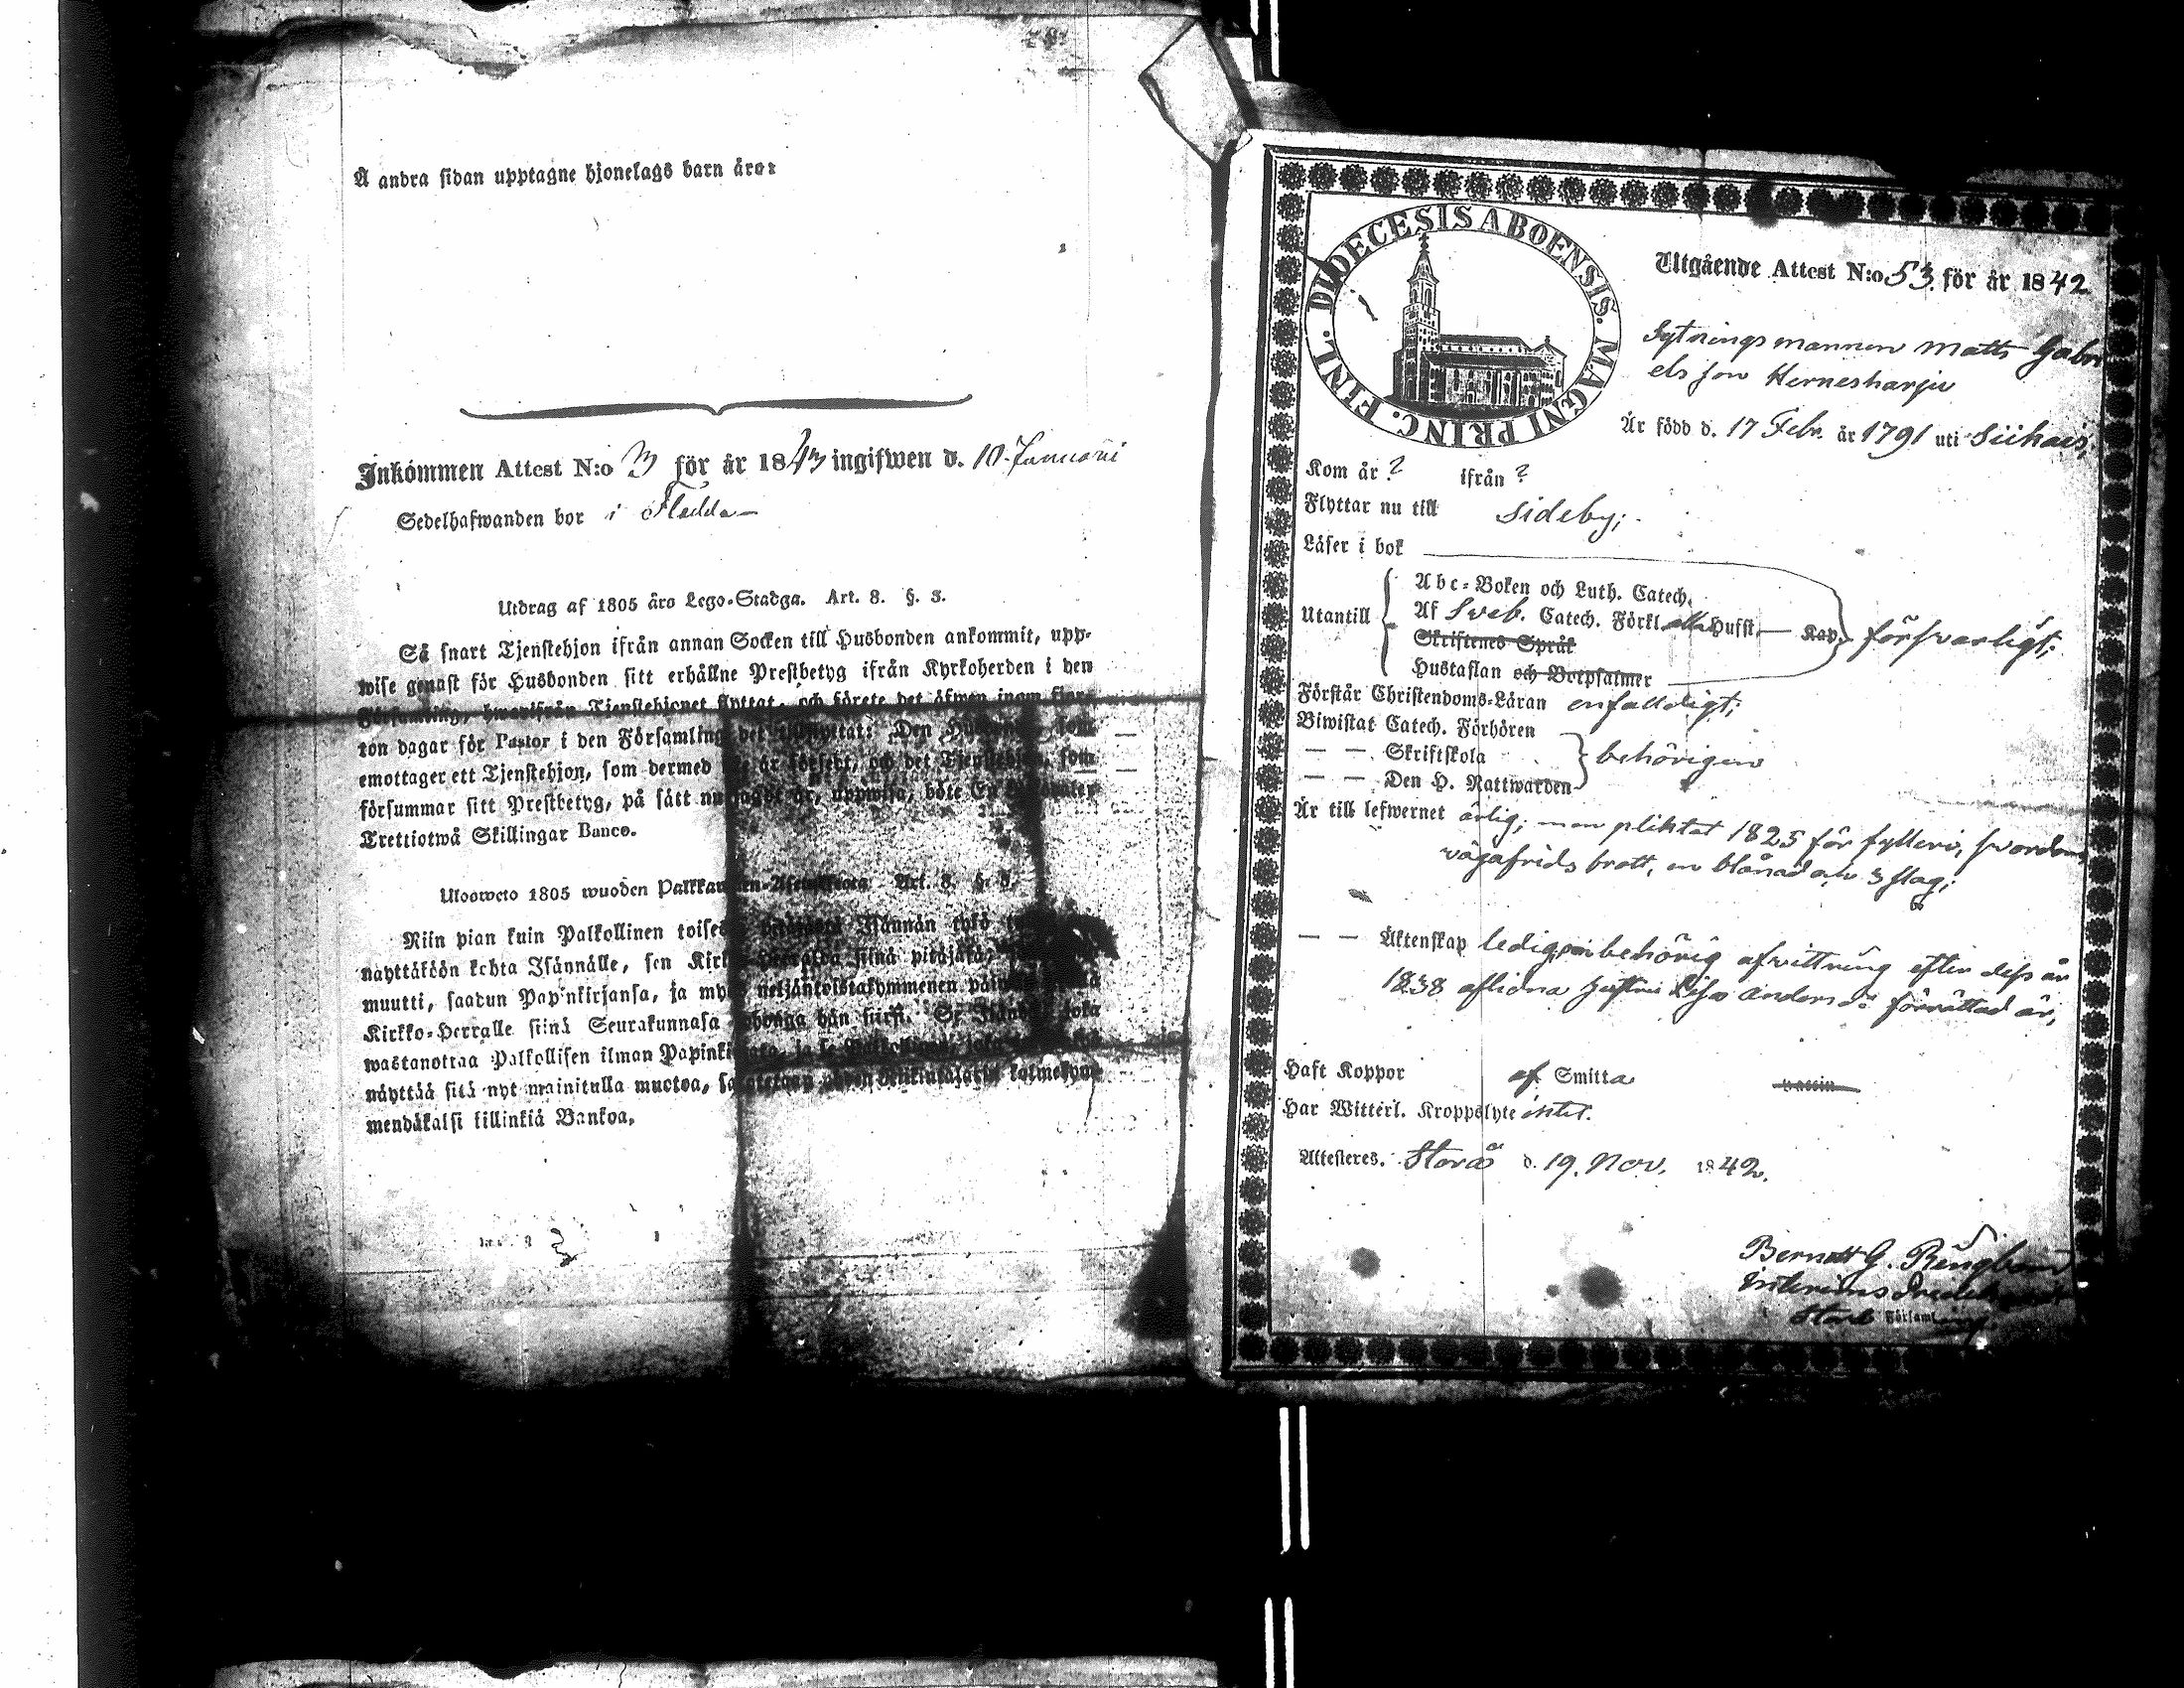 Å andra sidan upptagne hjonelags barn äro:
Inkommen Attest N:o 3 för år 1843 ingifwen d. 10 Januari
Sedelhafwanden bor i
Utdrag af 1805 års Lego-Stadga. Art. 8. §. 3.
Så snart Tjenstehjon ifrån annan Socken till Husbonden ankommit, upp-
wise genast för Husbonden sitt erhållne Prestbetyg ifrån Kyrkoherden i den
Församling, hwarifrån Tjenstehjonet flyttat, och förete det äfwen inom fjor-
ton dagar för Pastor i den Församling det tillflyttat: Den Husbonde, som
emottager ett Tjenstehjon, som dermed är försedt, och det Tjenstehjon, som
försummar sitt Prestbetyg, på sätt nu sagdt är, uppwisa, böte En Riksdaler
Trettiotwå Skillingar Banco.
Ulosweto 1805 wuoden Palkkau Art. 8. §. 3.
Niin pian kuin Palkollinen toisesta Isännän tykö
näyttäköön kohta Isännälle, sen Kirkko-Herralda siinä pitäjäsä,
muutti, saadun Papinkirjansa, ja myös neljäntoistakymmenen päiwän
Kirkko-Herralle siinä Seurakunnasa hän siirsi. Se Isändä, joka
wastanottaa Palkollisen ilman Papinkirjata, ja se Palkollinen, joka
näyttää sitä nyt mainitulla muotoa, kolmekym-
mendäkaksi killinkiä Bankoa.
DIOECESIS ABOENSIS. MAGNI PRINC. FINL.
Utgående Attest N:o 53 för år 1842
Sytningsmannen Matts Gabri
els son Hernesharju
Är född d. 17 Febr. år 1791 uti Siikais,
Kom år ? ifrån ?
Flyttar nu till Sideby;
Läser i bok
Abc-Boken och Luth. Catech.
Utantill Af Sveb. Catech. Förkl. alla Hufst. — Kap. försvarligt;
Skriftenes Språk
Hustaflan och Botpsalmer
Förstår Christendoms-Läran enfaldigt;
Biwistat Catech. Förhören
— — Skriftskola behörigen
— — Den H. Nattwarden
Är till lefwernet ärlig; men pliktat 1825 för fylleri, svordom,
vägafrids brott, en blånad och 3 slag;
— — Äktenskap ledig, om behörig afvittring efter dess år
1838 aflidna hustru Lisa Andersdr förrättad är,
Haft Koppor af Smitta vaccin
Har Witterl. Kroppslyte intet.
Attesteres. Storå d. 19. Nov. 1842.
Berndt G.
Interims
Storå Församling.